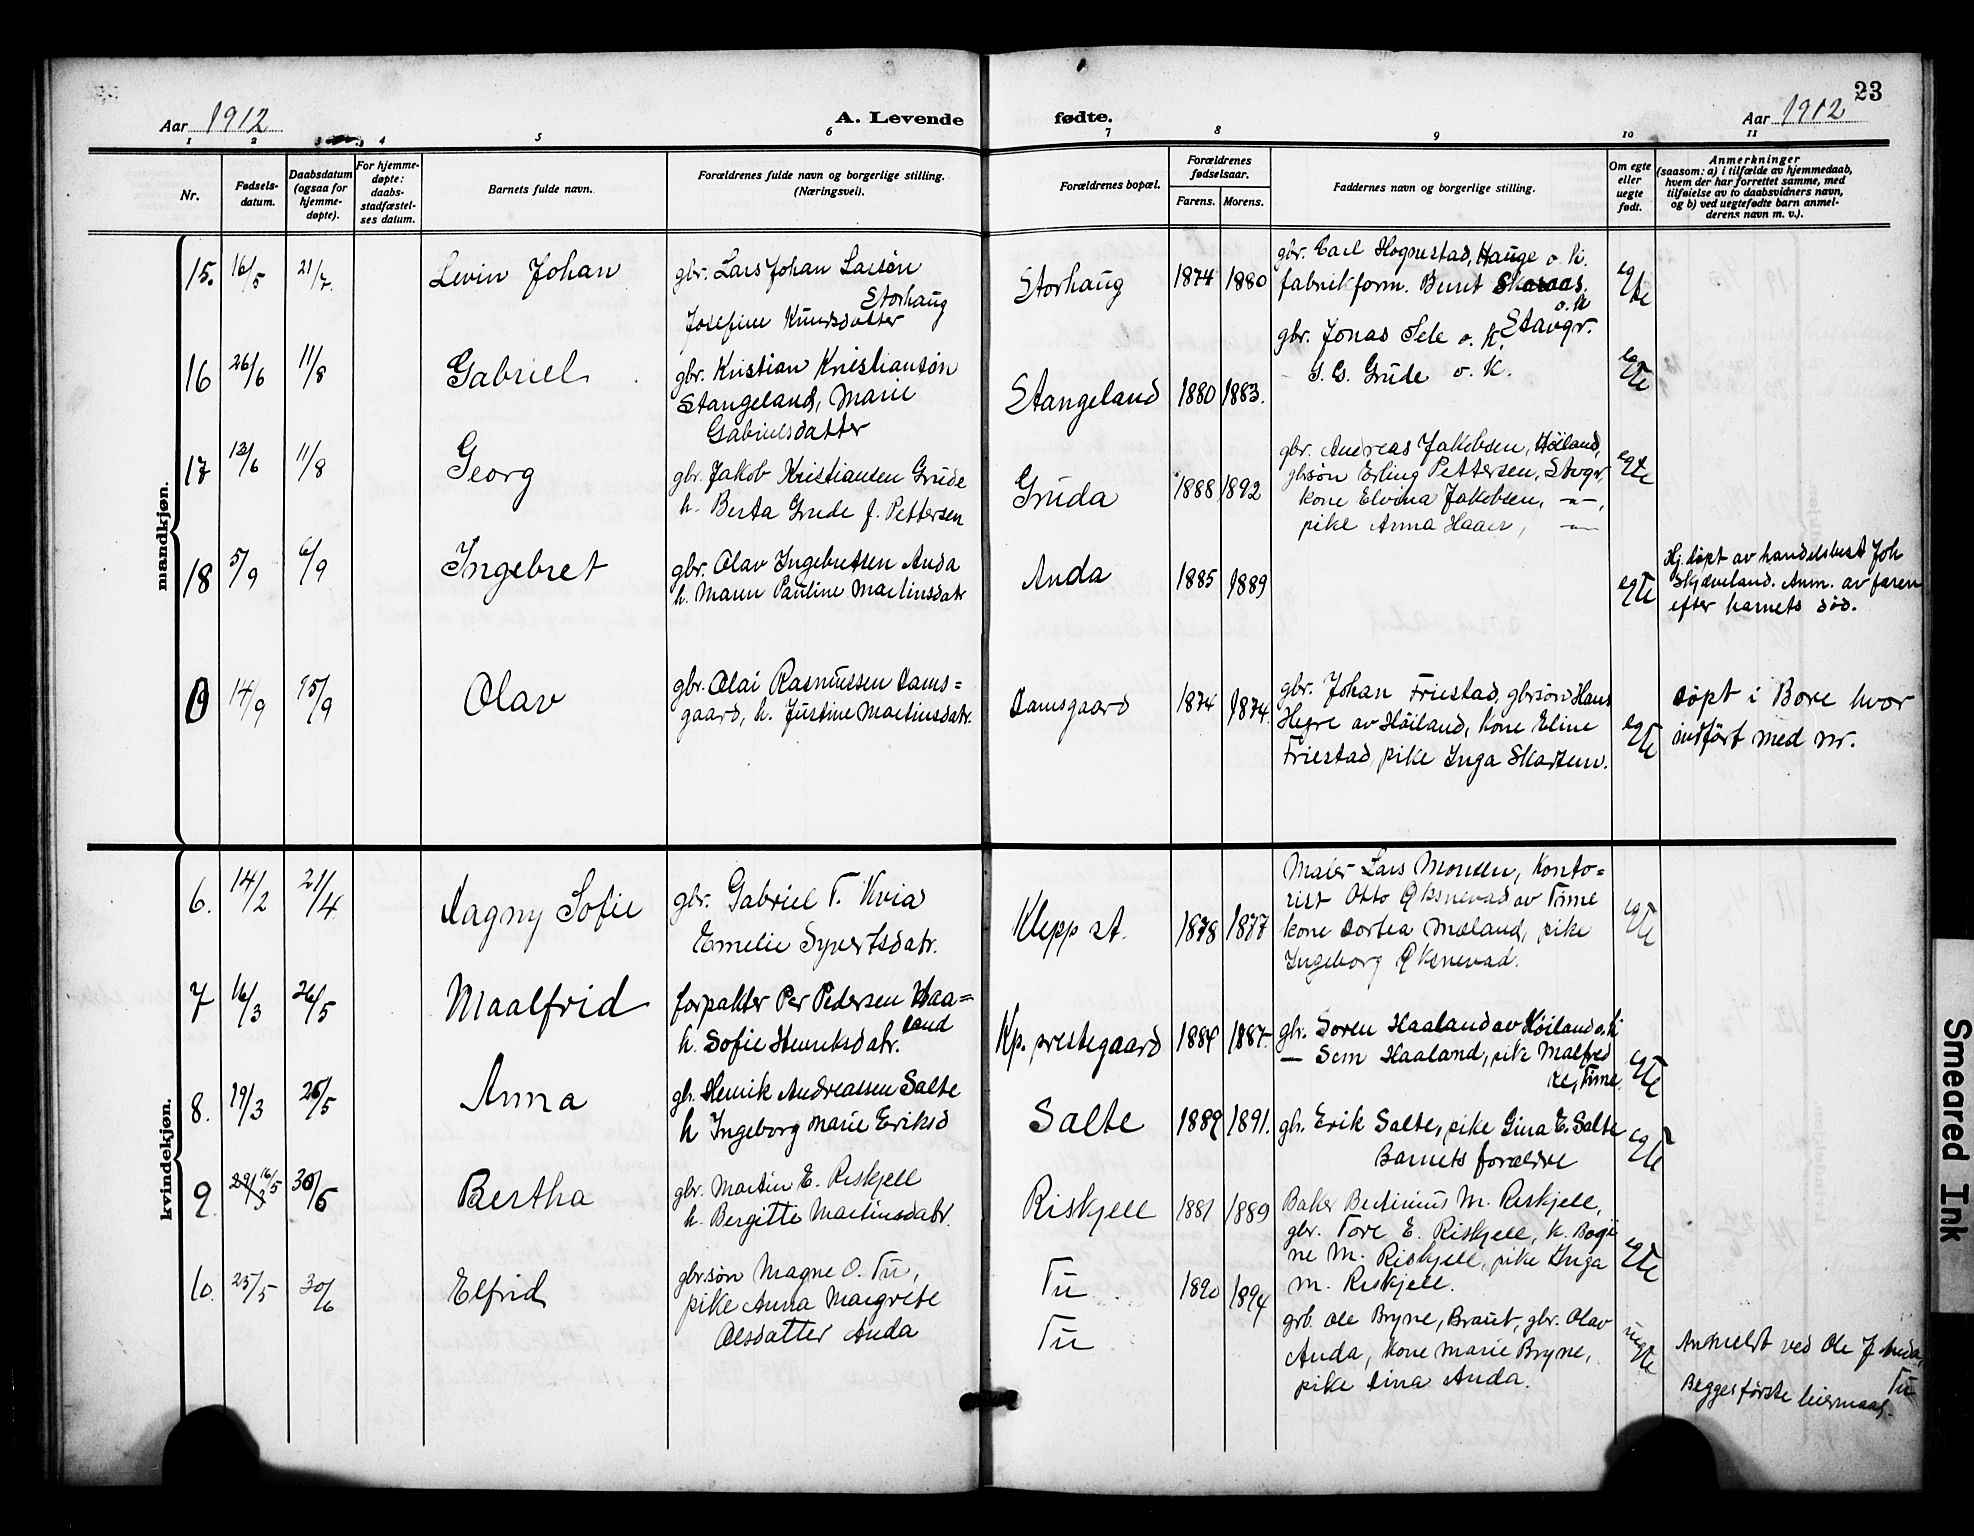 23
Aar 1912
A. Levende fødte.
Aar 1912
1 2 3 4 5 6 7 8 9 10 11
Nr.
Fødsels-
datum.
Daabsdatum
(ogsaa for
hjemme-
døpte).
For hjemme-
døpte:
daabs-
stadfæstel-
ses datum.
Barnets fulde navn.
Forældrenes fulde navn og borgerlige stilling.
(Næringsvei).
Forældrenes bopæl.
Forældrenes
fødselsaar.
Farens. Morens.
Faddernes navn og borgerlige stilling.
Om egte
eller
uegte
født.
Anmerkninger
(saasom: a) i tilfælde av hjemmedaab,
hvem der har forrettet samme, med
tilføielse av to daabsvidners navn,
og b) ved uegtefødte barn anmel-
derens navn m. v.).
mandkjøn.
15. 16/5 21/7. Levin Johan
gbr. Lars Johan Larsøn
Storhaug
Josefine Knudsdatter
Storhaug 1874 1880
gbr. Carl Hognestad, Hauge o. k.
fabrikform. Berut Skaraas.
o. k
Stavgr.
egte
16 26/6 11/8 Gabriel
gbr. Kristian Kristiansøn
Stangeland, Marie
Gabrielsdatter
Stangeland 1880 1883.
gbr. Jonas Sele o. k.
– S. G. Grude o. k.
egte
17 13/6 11/8 Georg
gbr. Jakob Kristiansen Grude
h. Berta Grude f. Pettersen
Gruda 1888 1892
gbr. Andreas Jakobsen, Høiland,
gbrsøn Erling Pettersen, Stvgr,
kone Elvina Jakobsen, –"–,
pike Anna Haaer, –"–
egte
18 5/9 6/9 Ingebret
gbr. Olav Ingebretsen Anda
h. Maren Pauline Martinsdatr
Anda 1885 1889
egte
Hj. døpt av handelsbest Joh
Skjæveland. Anm. av faren
efter barnets død.
0 14/9 15/9 Olav
gbr. Olai Rasmussen Dams=
gaard, h. Justine Martinsdatr.
Damsgaard 1874 1874.
gbr. Johan Friestad, gbrsøn Hans
Hegre av Høiland, kone Eline
Friestad, pike Inga Skadsem.
egte
Døpt i Bore hvor
indført med nr.
kvindekjøn.
6. 14/2 21/4 Dagny Sofie
gbr. Gabriel T. Kvia
Emelie Syvertsdatr.
Klepp st. 1878 1877
Maler Lars Monsen, konto=
rist Otto Øksnevad av Time
kone Dortea Mæland, pike
Ingeborg Øksnevad.
egte
7 16/3 26/5 Maalfrid
forpakter Per Pedersen Haa=
land
h. Sofie Henriksdatr.
Kp. prestegaard 1884 1887
gbr. Soren Haaland av Høiland o. k
— Sem Haaland, pike Malfred
Re, Time.
egte
8. 19/3 26/5 Anna
gbr. Henrik Andreassen Salte
h Ingeborg Marie Eriksd
Salte 1889 1891.
gbr. Erik Salte, pike Gina E. Salte
Barnets forældre
egte
9 29/3 16/5 30/6 Bertha
gbr. Martin E. Riskjell
h. Bergitte Martinsdatr.
Riskjell 1881 1889
Baker Bertinius M. Riskjell,
gbr. Tore E. Riskjell, k. Bogi
ne M. Riskjell, pike Inga
M. Riskjell.
egte
10. 25/5 30/6 Elfrid
gbrsøn Magne O. Tu,
pike Anna Margrete
Olsdatter Anda
Tu 1890 1894
Tu
grb. Ole Bryne, Braut, gbr. Olav
Anda, kone Marie Bryne,
pike Lina Anda.
uegte
Anmeldt ved Ole J Anda,
Tu
Begges første leiermaal.
Smeared Ink